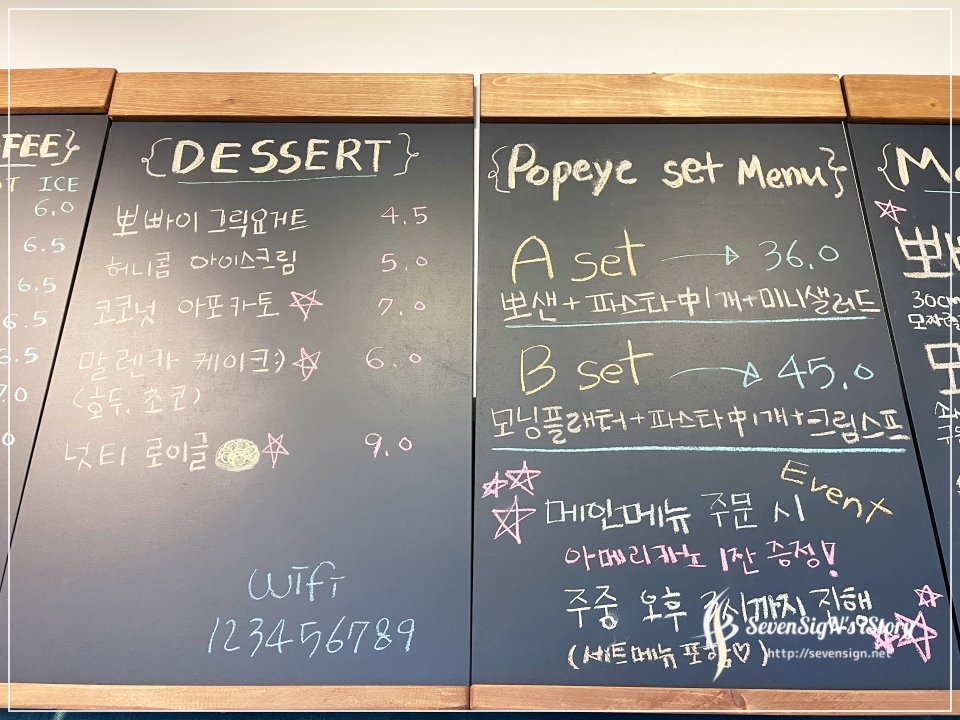 FEE}
T ICE
6.0
6.5
6.5
6.5
6.5
7.0
0
{DESSERT}
뽀빠이 그릭요거트 4.5
허니콤 아이스크림 5.0
코코넛 아포카토 7.0
말렌카 케이크:) 6.0
(호두, 초코)
넛티 로이글 9.0
wifi
123456789
{Popeye set Menu}
A set → 36.0
뽀샌+파스타中1개+미니샐러드
B set → 45.0
모닝플래터+파스타中1개+크림스프
Event
메인메뉴 주문 시
아메리카노 1잔 증정!
주중 오후 시까지 진행
(세트메뉴 포함♡)
{M
뽀빠
30cm
모
SevenSigN's iStory
http://sevensign.net